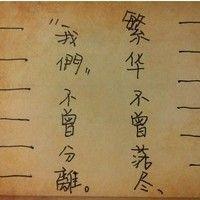 繁华不曾落尽、
“我們”不曾分離。